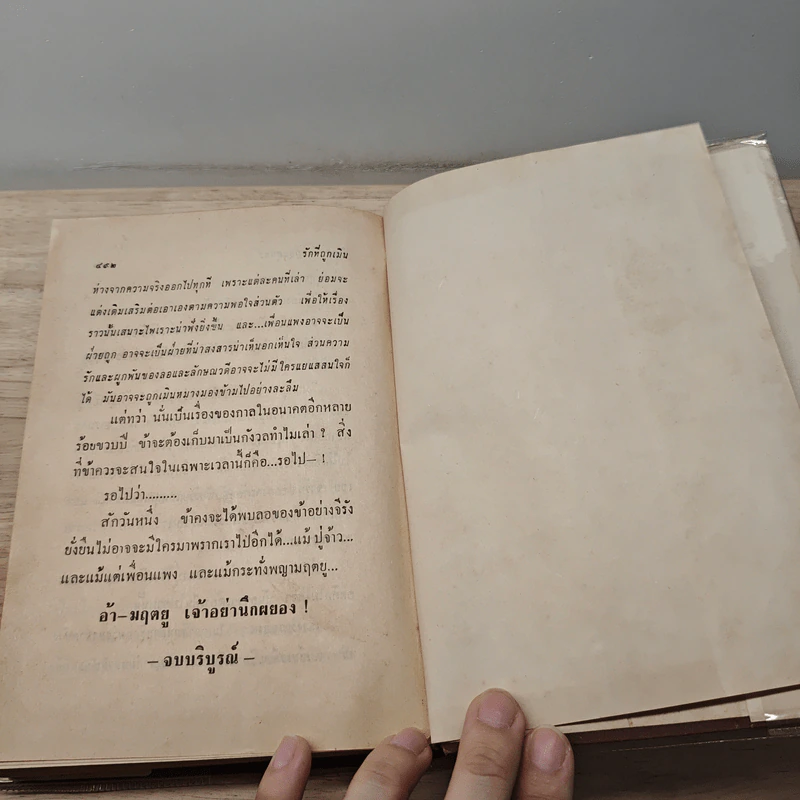 ๔๙๒ รักที่ถูกเมิน
ห่างจากความจริงออกไปทุกที เพราะแต่ละคนที่เล่า ย่อมจะ
แต่งเติมเสริมต่อเอาเองตามความพอใจส่วนตัว เพื่อให้เรื่อง
ราวนั้นเสนาะไพเราะน่าฟังยิ่งขึ้น และ...เพื่อนแพงอาจจะเป็น
ฝ่ายถูก อาจจะเป็นฝ่ายที่น่าสงสารน่าเห็นอกเห็นใจ ส่วนความ
รักและผูกพันของลอและลักษณวดีอาจจะไม่มีใครแยแสสนใจก็
ได้ มันอาจจะถูกเมินหมางมองข้ามไปอย่างละลืม
แต่ทว่า นั่นเป็นเรื่องของกาลในอนาคตอีกหลาย
ร้อยขวบปี ข้าจะต้องเก็บมาเป็นกังวลทำไมเล่า ? สิ่ง
ที่ข้าควรจะสนใจในเฉพาะเวลานี้ก็คือ...รอไป— !
รอไปว่า.........
สักวันหนึ่ง ข้าคงจะได้พบลอของข้าอย่างจีรัง
ยั่งยืนไม่อาจจะมีใครมาพรากเราไปอีกได้...แม้ ปู่จ้าว...
และแม้แต่เพื่อนแพง และแม้กระทั่งพญามฤตยู...
อ้า–มฤตยู เจ้าอย่านึกผยอง !
– จบบริบูรณ์ –